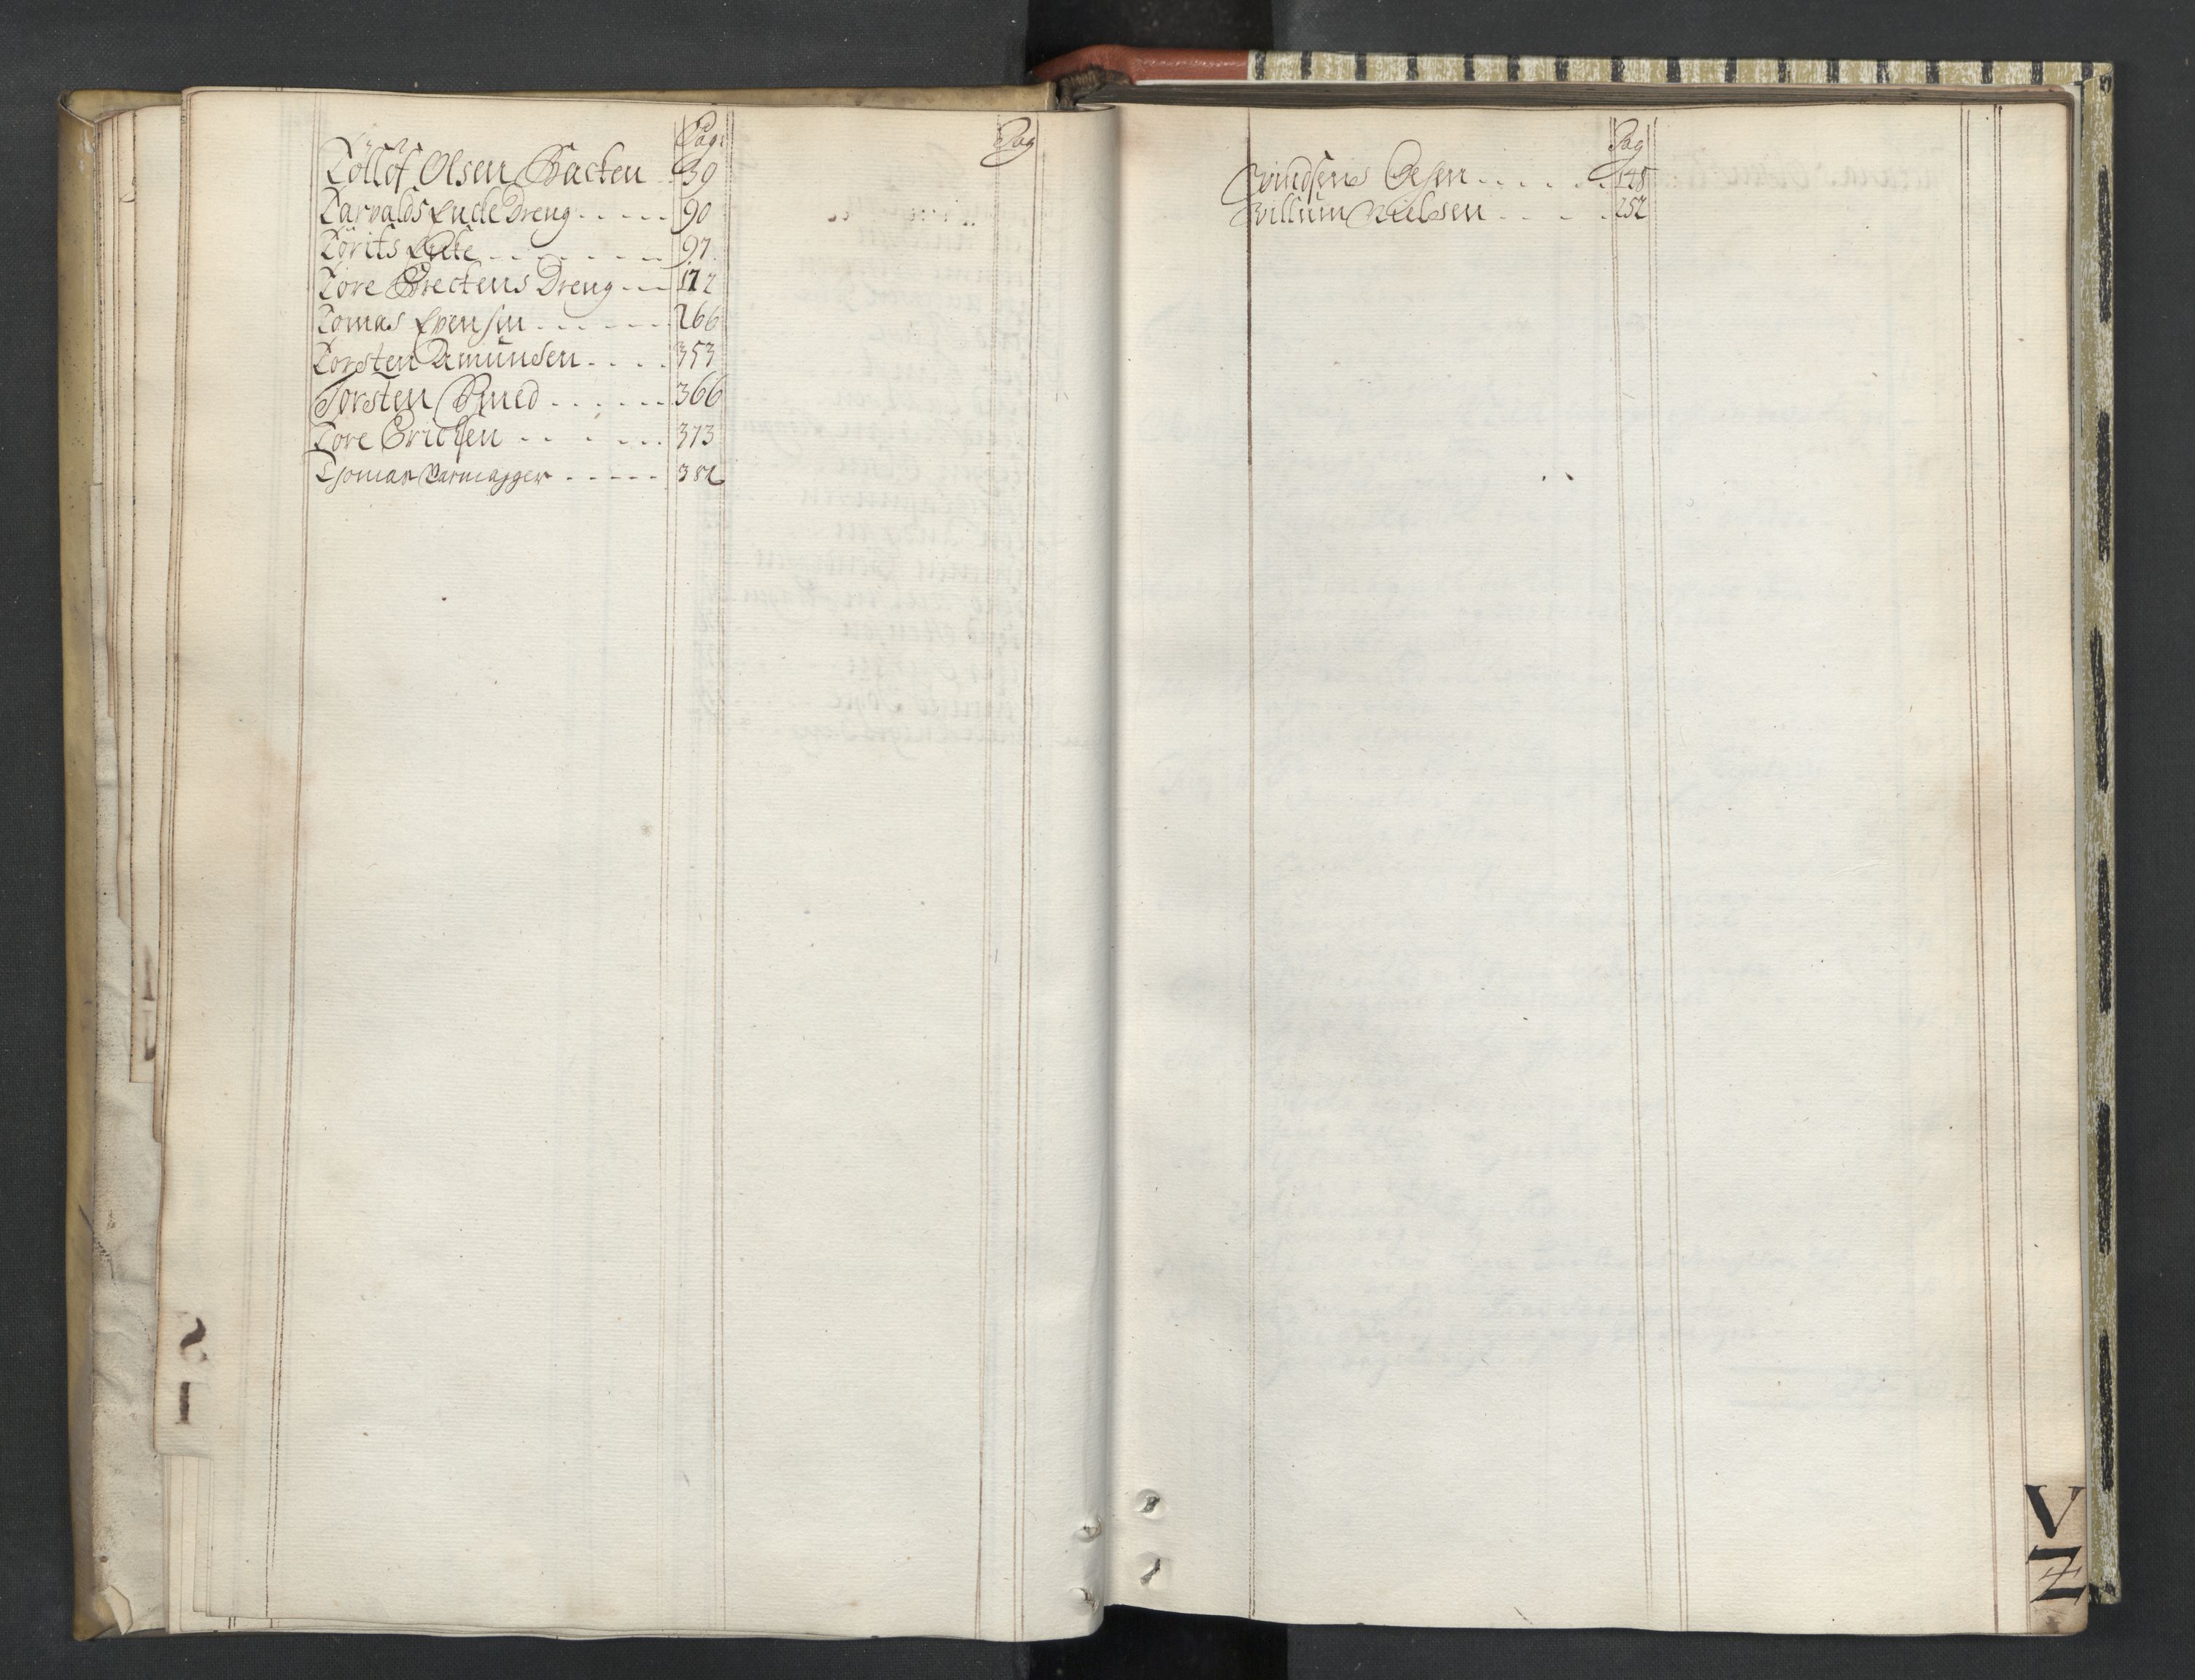 Pag:
Tollof Olsen Backen 39
Tarvalds Lucke Dreng . . . . . 90
Torits Lycke . . . . . . . 97
Tore Breckens Dreng . . . 172
Tomas Evensen . . . . . . 266
Torsten Amundsen . . . . 353
Torsten Smed . . . . . . 366
Tore Erichsen . . . . . . 373
Thomas . . . . . 382
Pag
Pag
Olsen . . . . . . 148
Willum Nielsen . . . . 252
V
Z